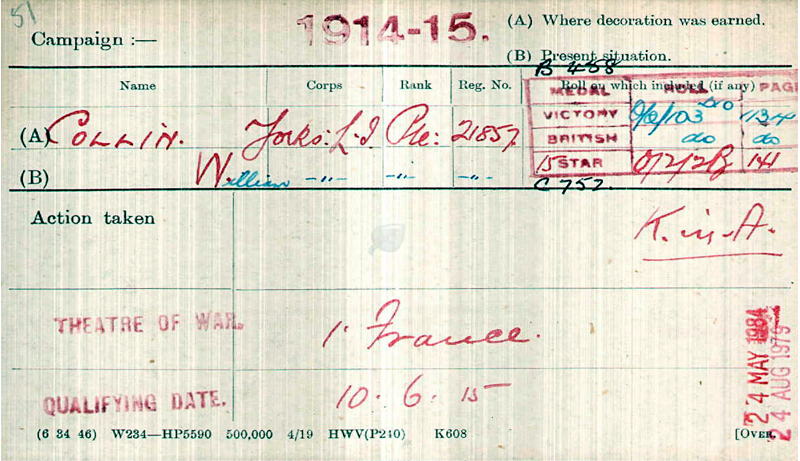 51
Campaign :— 1914-15. (A) Where decoration was earned.
(B) Present situation.
B 458
Name Corps Rank Reg. No. Roll on which included (if any)
MEDAL ROLL PAGE
(A) COLLIN. Yorks: L.I Pte: 21857.
VICTORY 134
BRITISH do do
(B) William -"- -"- -"-
15 STAR 0/2/2B 141
C 752.
Action taken
K. in. A.
THEATRE OF WAR. 1. France.
QUALIFYING DATE. 10. 6. 15
24 MAY 1984
24 AUG 1979
(6 34 46) W234—HP5590 500,000 4/19 HWV(P240) K608 [OVER.